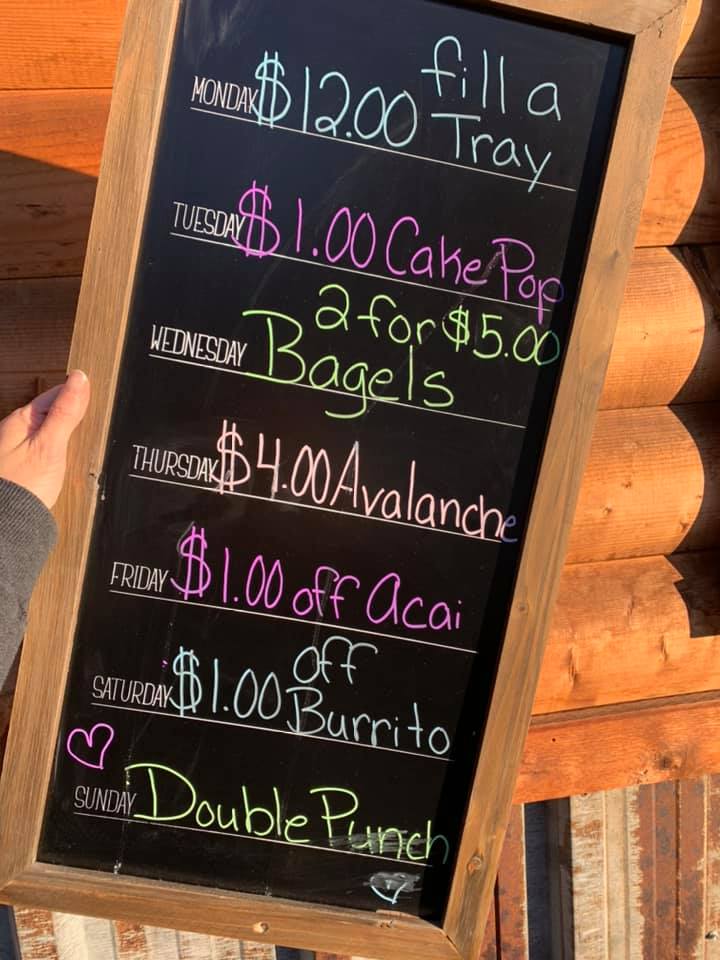 MONDAY $12.00 fill a
Tray
TUESDAY $1.00 Cake Pop
2 for $5.00
WEDNESDAY Bagels
THURSDAY $4.00 Avalanche
FRIDAY $1.00 off Acai
off
SATURDAY $1.00 Burrito
SUNDAY Double Punch